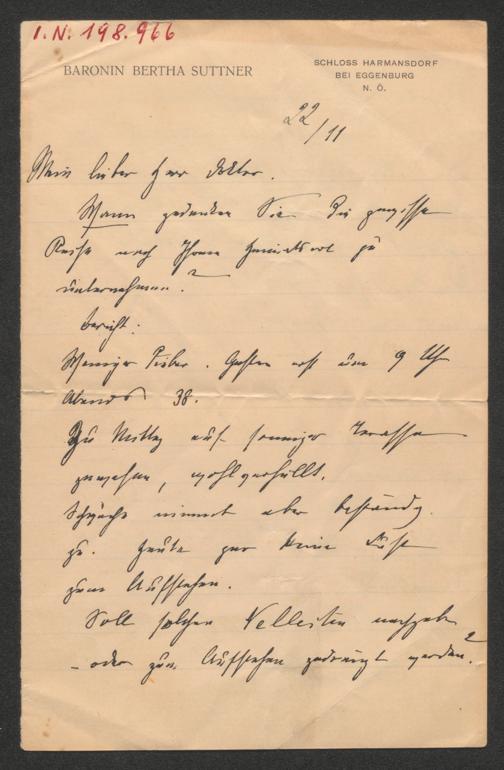 I.N. 198.966
BARONIN BERTHA SUTTNER
SCHLOSS HARMANSDORF
BEI EGGENBURG
N. Ö.
22/11
Mein lieber Herr Doktor.
Wann gedenken Sie die gewisse
Reise nach Ihrem Geburtsort zu
unternehmen?
Bericht:
Weniger Fieber. Gestern erst um 9 Uhr
Abends 38.
Zu Mittag auf sonniger Terasse
gewesen, wohl verhüllt.
Schwäche nimmt aber beständig
zu. Heute gar keine Lust
zum Aufstehen.
Soll solchen Velleitäten nachgeben
– oder zum Aufstehen gedrängt werden?